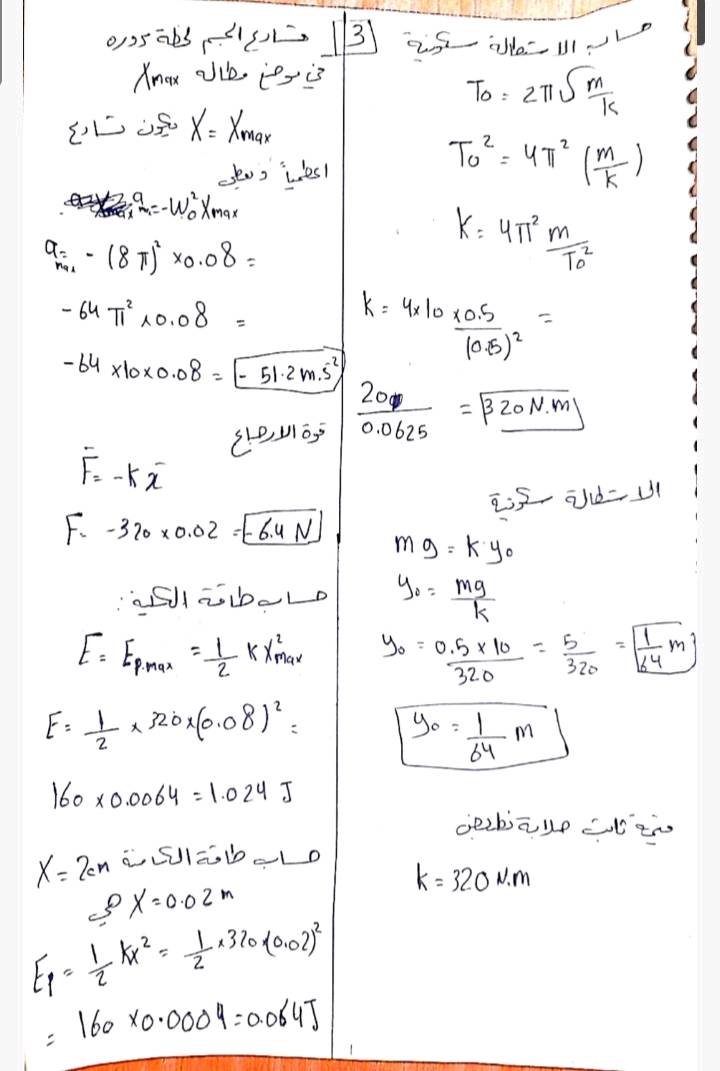 حساب الاستطالة سكونية
T₀ = 2π√m/k
T₀² = 4π² (m/k)
k = 4π² m/T₀²
k = 4×10×0.5/(0.5)² =
200/0.0625 = 320 N.m
الاستطالة سكونية
mg = k y₀
y₀ = mg/k
y₀ = 0.5×10/320 = 5/320 = 1/64 m
y₀ = 1/64 m
ثابت صلابة
k = 320 N.m
3 تسارع الجسم لحظة مروره
في موضع مطاله Xmax
X = Xmax يكون تسارع
اعظمياً
a = -ω₀² Xmax
a max = -(8π)² × 0.08 =
-64 π² × 0.08 =
-64 × 10 × 0.08 = -51.2 m.s²
قوة الارجاع
F̄ = -k x̄
F = -320 × 0.02 = -6.4 N
حساب طاقة الكلية:
E = Ep.max = 1/2 k X²max
E = 1/2 × 320 × (0.08)² =
160 × 0.0064 = 1.024 J
حساب طاقة الكامنة X = 2cm
X = 0.02 m في
Ep = 1/2 kx² = 1/2 × 320 × (0.02)²
= 160 × 0.0004 = 0.064 J